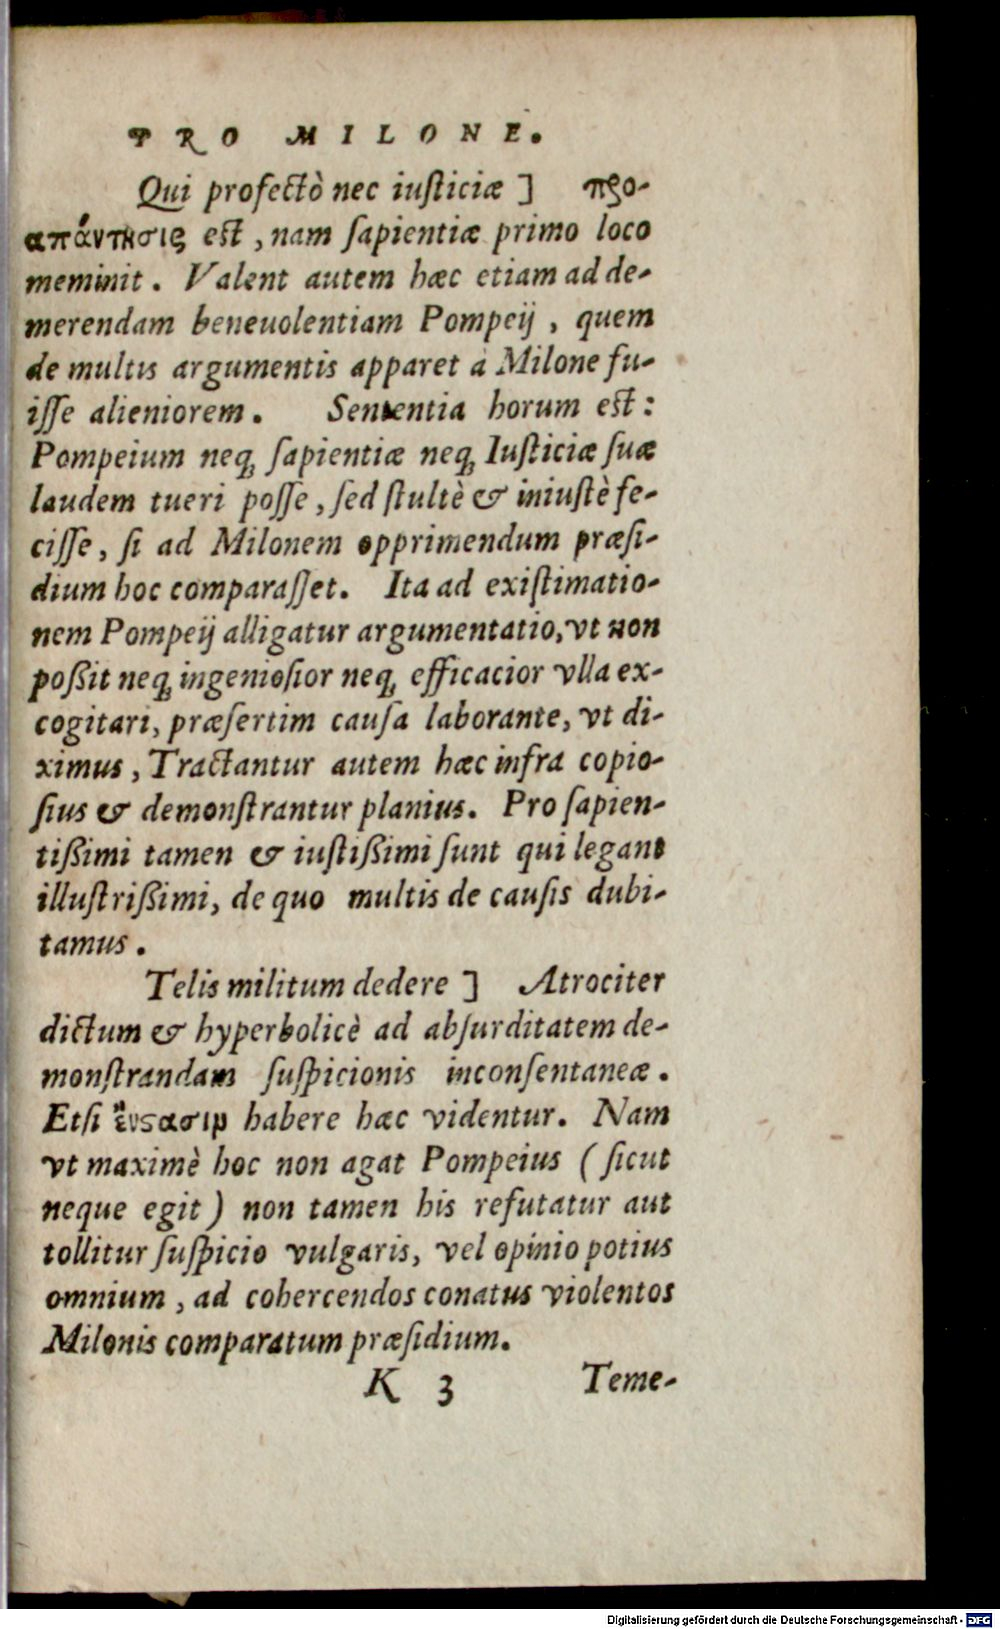 PRO MILONE.
Qui profectò nec iusticiæ ] προ-
απάντησις est, nam sapientiæ primo loco
meminit. Valent autem hæc etiam ad de-
merendam beneuolentiam Pompeij, quem
de multis argumentis apparet à Milone fu-
isse alieniorem. Sententia horum est:
Pompeium neq; sapientiæ neq; Iusticiæ suæ
laudem tueri posse, sed stultè & iniustè fe-
cisse, si ad Milonem opprimendum præsi-
dium hoc comparasset. Ita ad existimatio-
nem Pompeij alligatur argumentatio, vt non
poßit neq; ingeniosior neq; efficacior vlla ex-
cogitari, præsertim causa laborante, vt di-
ximus, Tractantur autem hæc infra copio-
sius & demonstrantur planius. Pro sapien-
tißimi tamen & iustißimi sunt qui legant
illustrißimi, de quo multis de causis dubi-
tamus.
Telis militum dedere ] Atrociter
dictum & hyperbolicè ad absurditatem de-
monstrandam suspicionis inconsentaneæ.
Etsi ἔνστασιν habere hæc videntur. Nam
vt maximè hoc non agat Pompeius (sicut
neque egit) non tamen his refutatur aut
tollitur suspicio vulgaris, vel opinio potius
omnium, ad cohercendos conatus violentos
Milonis comparatum præsidium.
K 3 Teme-
Digitalisierung gefördert durch die Deutsche Forschungsgemeinschaft - DFG